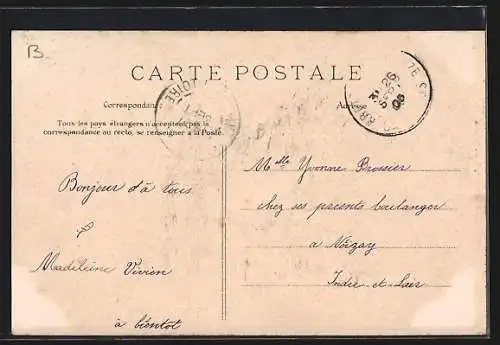 B.
CARTE POSTALE
Correspondance
Adresse
Tous les pays étrangers n'acceptent pas la
correspondance au recto, se renseigner à la Poste.
26
SEPT
05
LOIRE
Bonjour d'à tous
Madeleine Vivien
à bientôt
Melle Yvonne Brossier
chez ses parents boulanger
a Noizay
Indre et Loir